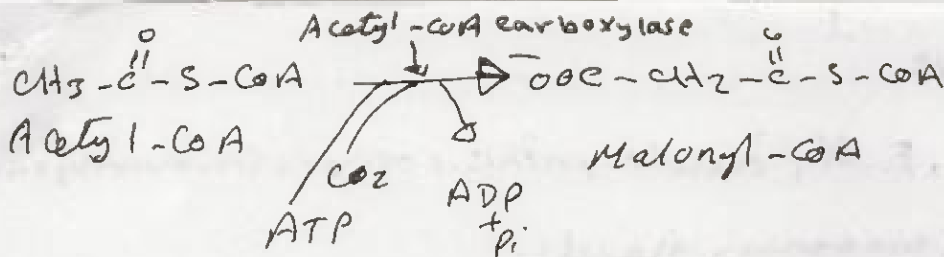 Acetyl-CoA carboxylase
O
CH3-C-S-CoA → ⁻OOC-CH2-C-S-CoA
O
Acetyl-CoA
Malonyl-CoA
CO2
ATP
ADP
+
Pi